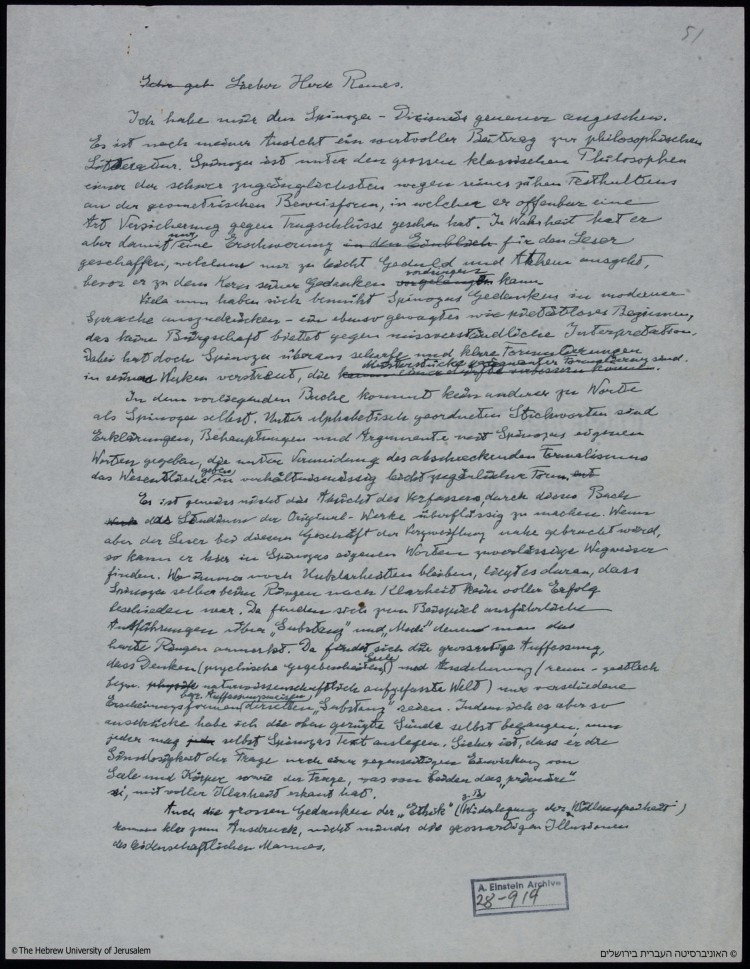 51
Lieber Herr Runes.
Ich habe mir den Spinoza - Dictionär genauer angesehen.
Es ist nach meiner Ansicht ein wertvoller Beitrag zur philosophischen
Litteratur. Spinoza ist unter den grossen klassischen Philosophen
einer der schwer zugänglichsten wegen seines zähen Festhaltens
an der geometrischen Beweisform, in welcher er offenbar eine
Art Versicherung gegen Trugschlüsse gesehen hat. In Wahrheit hat er
aber damit nur eine Erschwerung in den Einblick für den Leser
geschaffen, welchem nur zu leicht Geduld und Athem ausgeht,
bevor er zu dem Kern seiner Gedanken vordringen kann.
Viele nun haben sich bemüht Spinozas Gedanken in moderner
Sprache auszudrücken - ein ebenso gewagtes wie pietätloses Beginnen,
das keine Bürgschaft bietet gegen missverständliche Interpretation.
Dabei hat doch Spinoza überaus scharfe und klare Formulierungen
in seinen Werken verstreut, die Meisterstücke prägnanter Formulierung sind.
In dem vorliegenden Buche kommt kein anderer zu Worte
als Spinoza selbst. Unter alphabetisch geordneten Stichworten sind
Erklärungen, Behauptungen und Argumente mit Spinozas eigenen
Worten gegeben, die unter Vermeidung des abschreckenden Formalismus
das Wesentliche geben in verhältnismässig leicht zugänglicher Form.
Es ist gewiss nicht die Absicht des Verfassers, durch dieses Buch
das Studium der Original-Werke überflüssig zu machen. Wenn
aber der Leser bei diesem Geschäft der Verzweiflung nahe gebracht wird,
so kann er hier in Spinozas eigenen Worten zuverlässige Wegweiser
finden. Wo immer noch Unklarheiten bleiben, liegt es daran, dass
Spinoza selber beim Ringen nach Klarheit kein voller Erfolg
beschieden war. Da finden sich zum Beispiel ausführliche
Ausführungen über „Substanz" und „Modi" denen man das
harte Ringen anmerkt. Da findet sich die grossartige Auffassung,
dass Denken (psychische Gegebenheiten, Seele) und Ausdehnung (räum-zeitlich
bezw. naturwissenschaftlich aufgefasste Welt) nur verschiedene
Erscheinungsformen (bezw. Auffassungsweisen) derselben „Substanz" seien. Indem ich es aber so
ausdrücke habe ich die oben gerügte Sünde selbst begangen; nun
jeder mag selbst Spinozas Text auslegen. Sicher ist, dass er die
Sinnlosigkeit der Frage nach einer gegenseitigen Einwirkung von
Seele und Körper sowie der Frage, was von beiden das „primäre"
sei, mit voller Klarheit erkannt hat.
Auch die grossen Gedanken der „Ethik" (z. B. Widerlegung der „Willensfreiheit")
kommen klar zum Ausdruck, nicht minder die grossartigen Illusionen
des leidenschaftlichen Mannes.
A. Einstein Archive
28-919
© The Hebrew University of Jerusalem
© האוניברסיטה העברית בירושלים